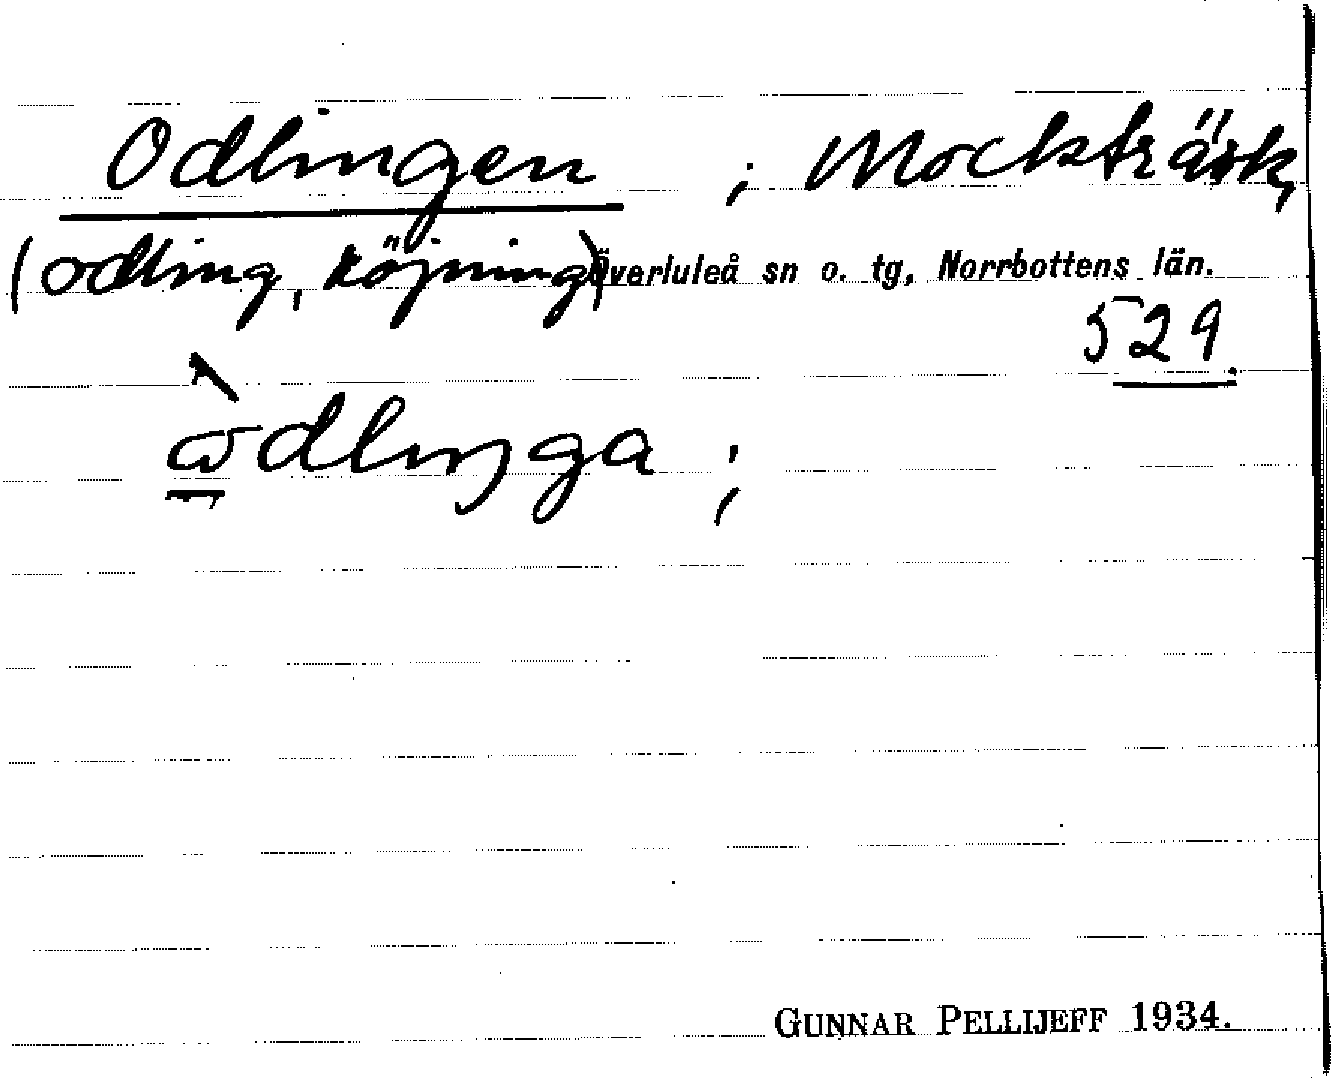 Odlingen ; Mockträsk,
(odling, röjning) Överluleå sn o. tg, Norrbottens län.
529.
ò̱dlıŋga ;
GUNNAR PELLIJEFF 1934.